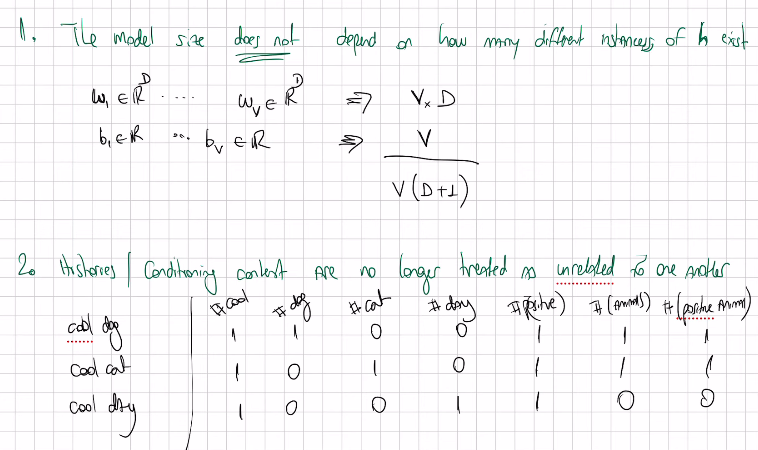 1. The model size does not depend on how many different instances of h exist
w₁ ∈ ℝᴰ .... w_V ∈ ℝᴰ ⇒ V × D
b₁ ∈ ℝ ... b_V ∈ ℝ ⇒ V
V(D+1)
2. Histories / Conditioning context are no longer treated as unrelated to one another
#cool #dog #cat #day #(positive) #(animals) #(positive animal)
cool dog 1 1 0 0 1 1 1
cool cat 1 0 1 0 1 1 1
cool day 1 0 0 1 1 0 0